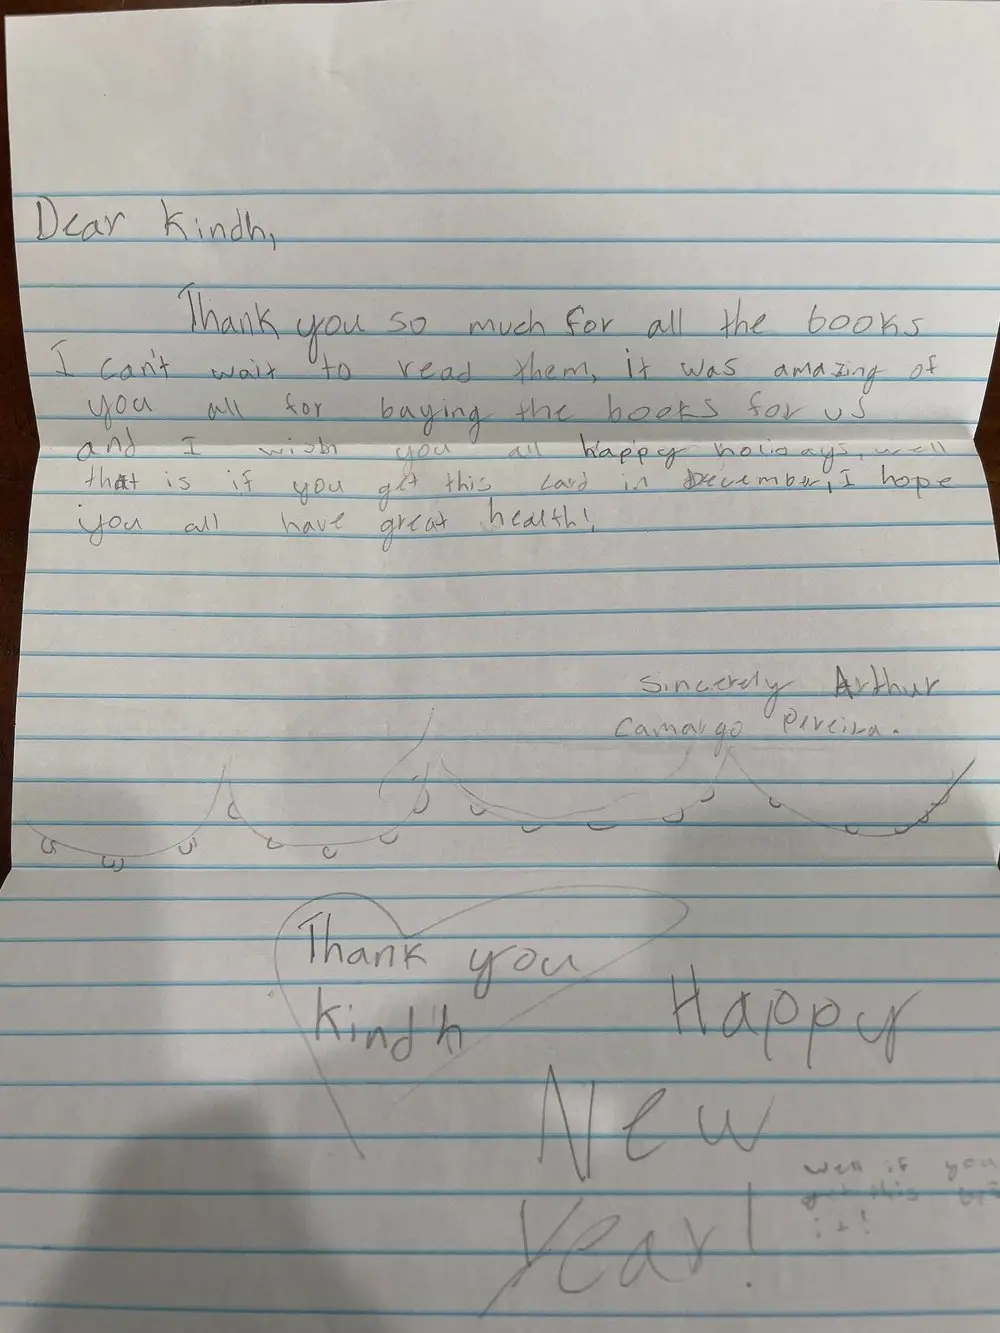 Dear Kindh,
Thank you so much for all the books
I can't wait to read them, it was amazing of
you all for baying the books for us
and I wish you all happy holidays, well
that is if you get this card in December, I hope
you all have great health!
Sincerely Arthur
Camargo Pereira.
Thank you
Kindh
Happy
New
Year!
well if you
get this
it!